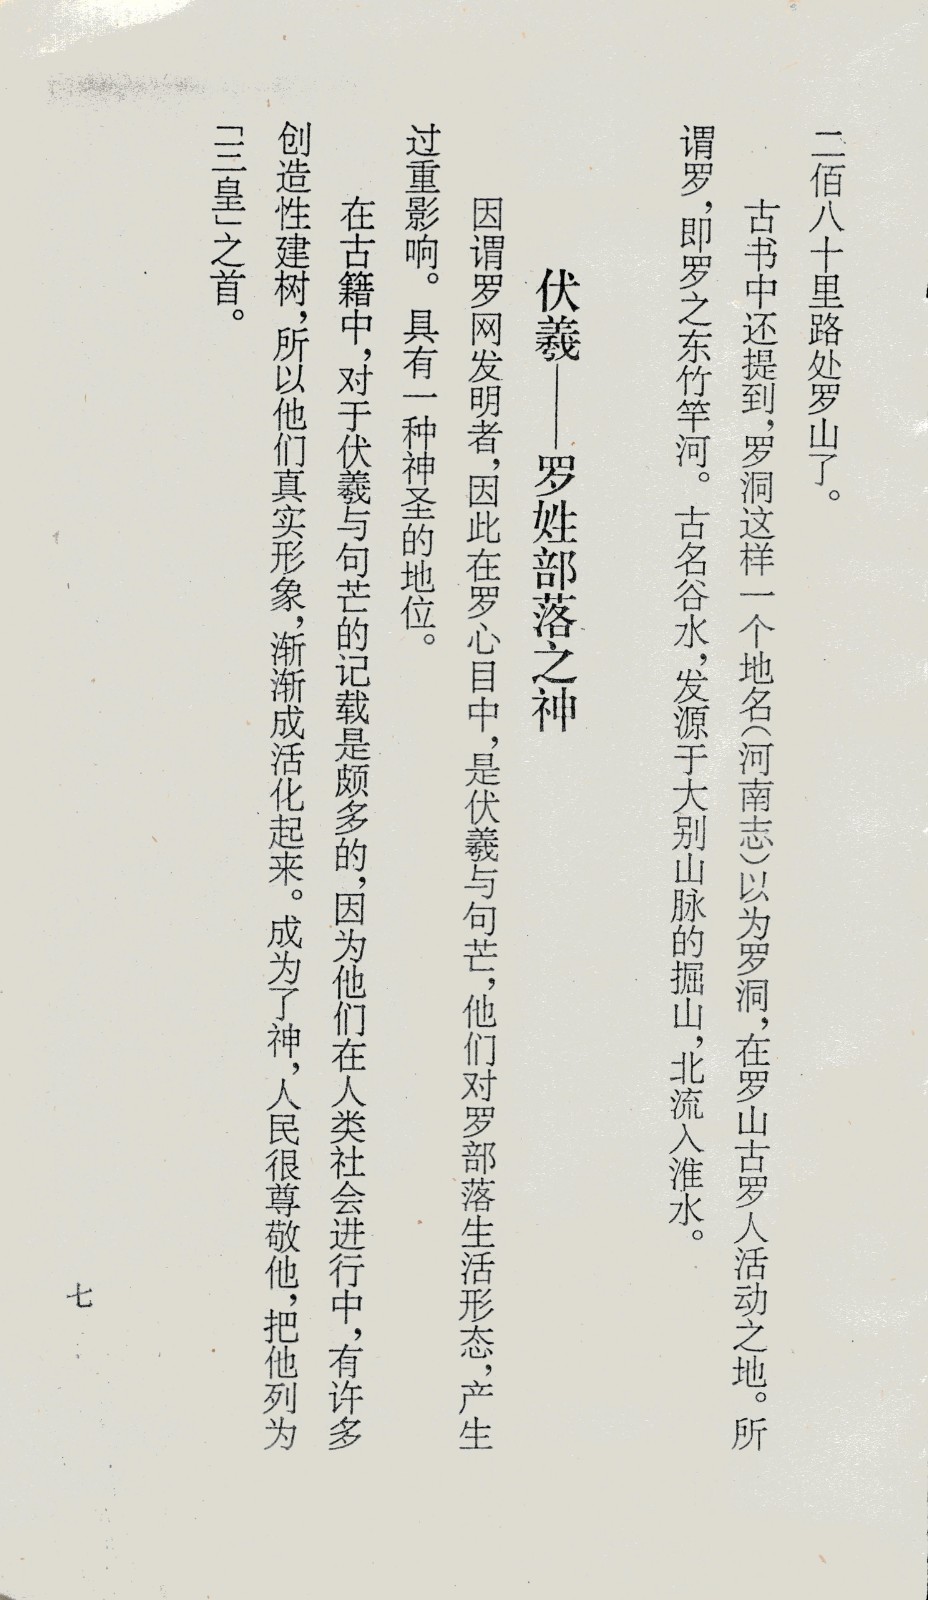 二佰八十里路处罗山了。
古书中还提到，罗洞这样一个地名（河南志）以为罗洞，在罗山古罗人活动之地。所
谓罗，即罗之东竹竿河。古名谷水，发源于大别山脉的掘山，北流入淮水。
伏羲——罗姓部落之神
因谓罗网发明者，因此在罗心目中，是伏羲与句芒，他们对罗部落生活形态，产生
过重影响。具有一种神圣的地位。
在古籍中，对于伏羲与句芒的记载是颇多的，因为他们在人类社会进行中，有许多
创造性建树，所以他们真实形象，渐渐成活化起来。成为了神，人民很尊敬他，把他列为
「三皇」之首。
七